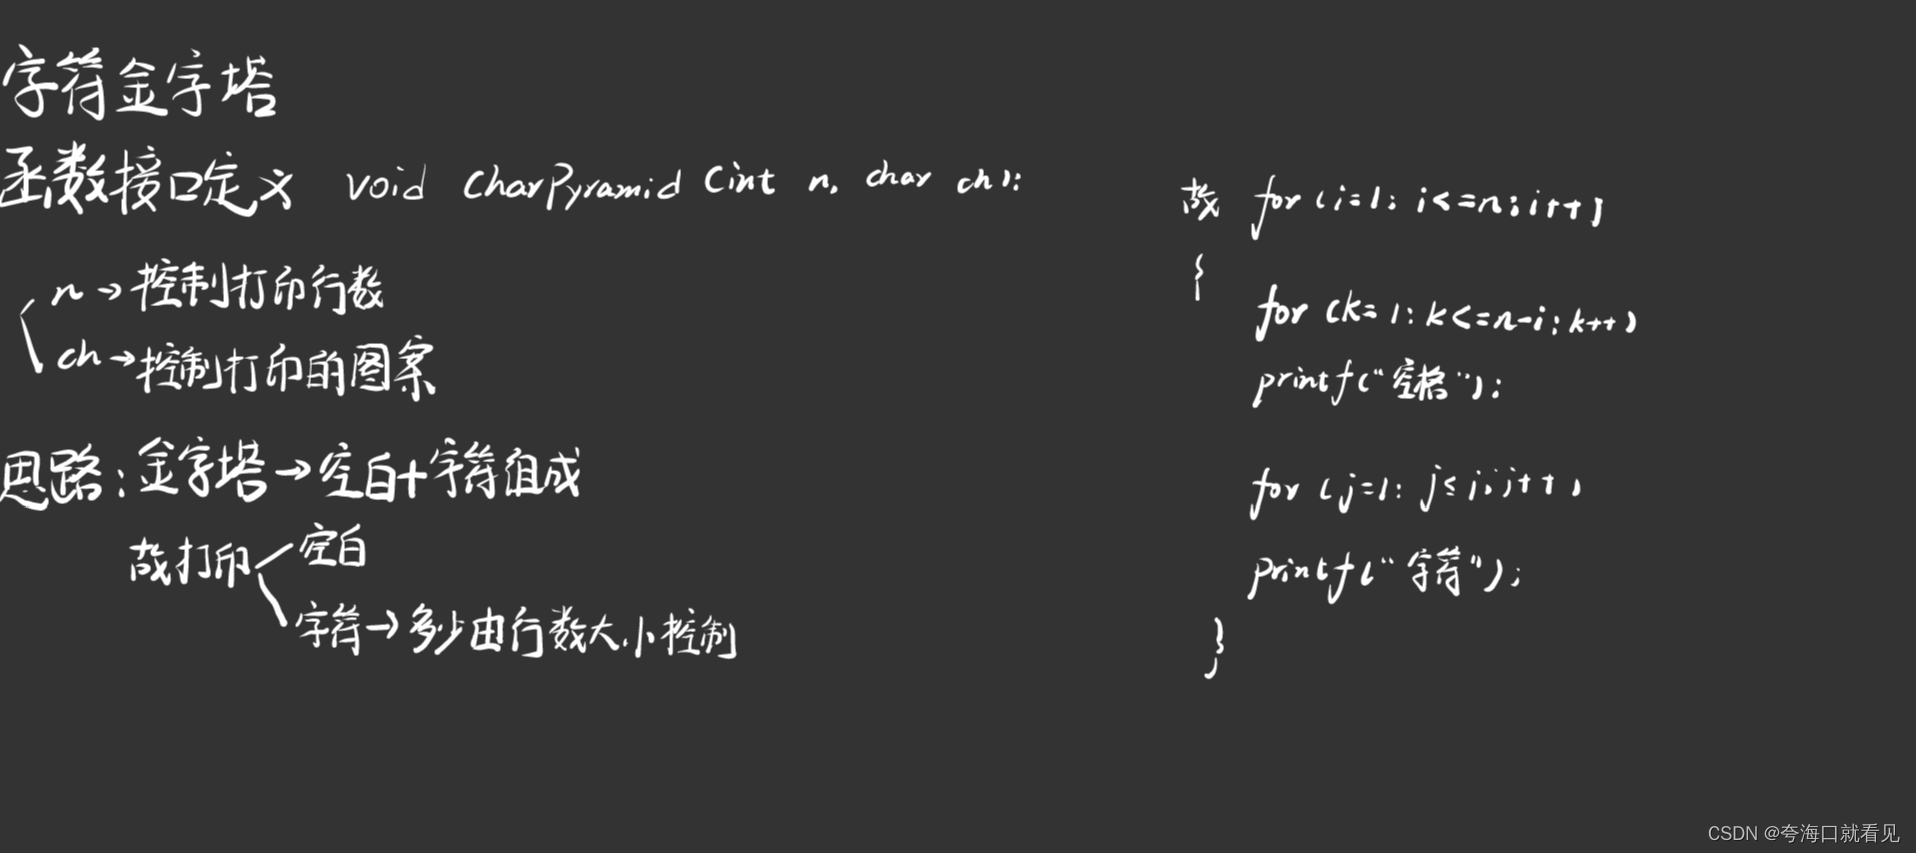 字符金字塔
函数接口定义 void CharPyramid (int n, char ch);
n→控制打印行数
ch→控制打印的图案
思路:金字塔→空白+字符组成
故打印
空白
字符→多少由行数大小控制
故 for (i=1; i<=n; i++)
{
for (k=1; k<=n-i; k++)
printf("空格");
for (j=1; j≤i; j++)
printf("字符");
}
CSDN @夸海口就看见